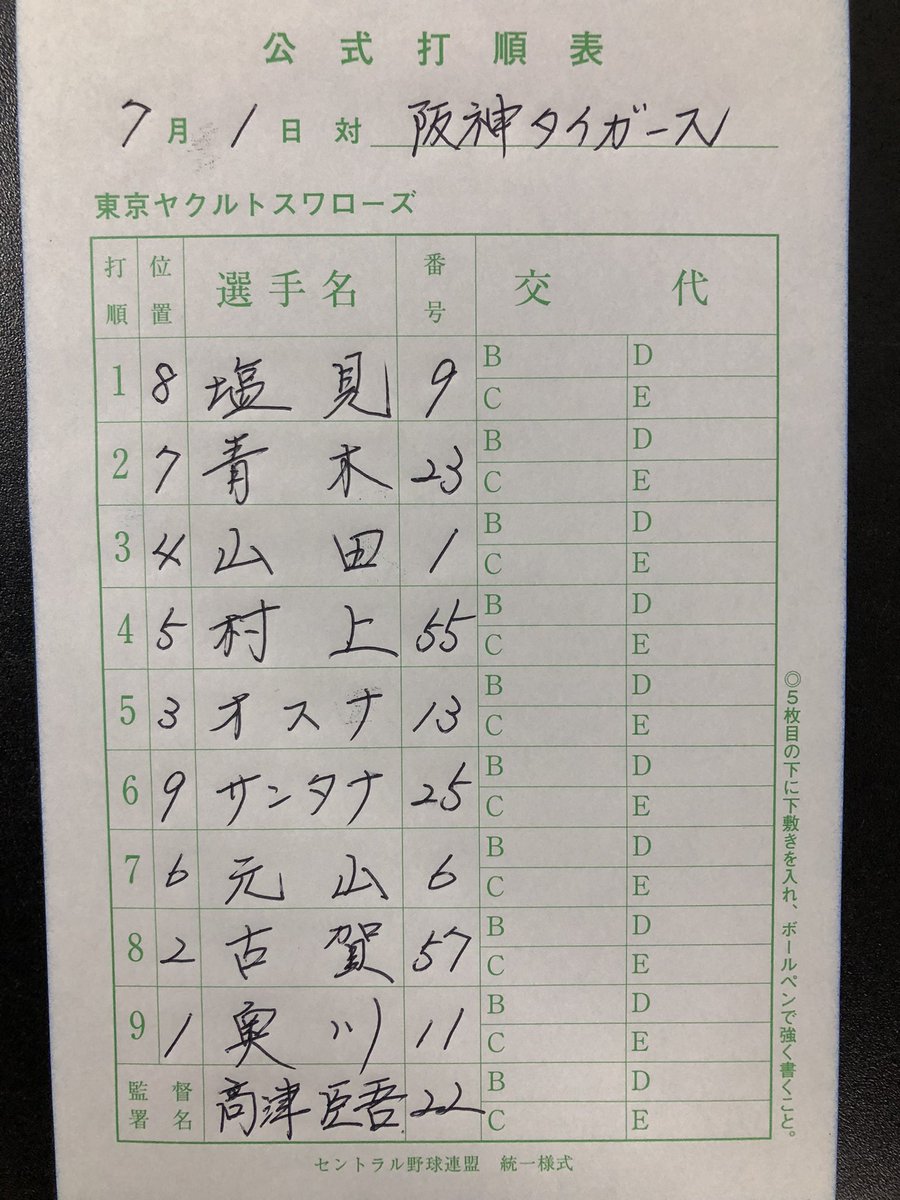 公式打順表
7月1日対 阪神タイガース
東京ヤクルトスワローズ
打順 位置 選手名 番号 交代
1 8 塩見 9 B D C E
2 7 青木 23 B D C E
3 4 山田 1 B D C E
4 5 村上 55 B D C E
5 3 オスナ 13 B D C E
6 9 サンタナ 25 B D C E
7 6 元山 6 B D C E
8 2 古賀 57 B D C E
9 1 奥川 11 B D C E
監督署名 高津臣吾 22 B D C E
◎5枚目の下に下敷きを入れ、ボールペンで強く書くこと。
セントラル野球連盟 統一様式